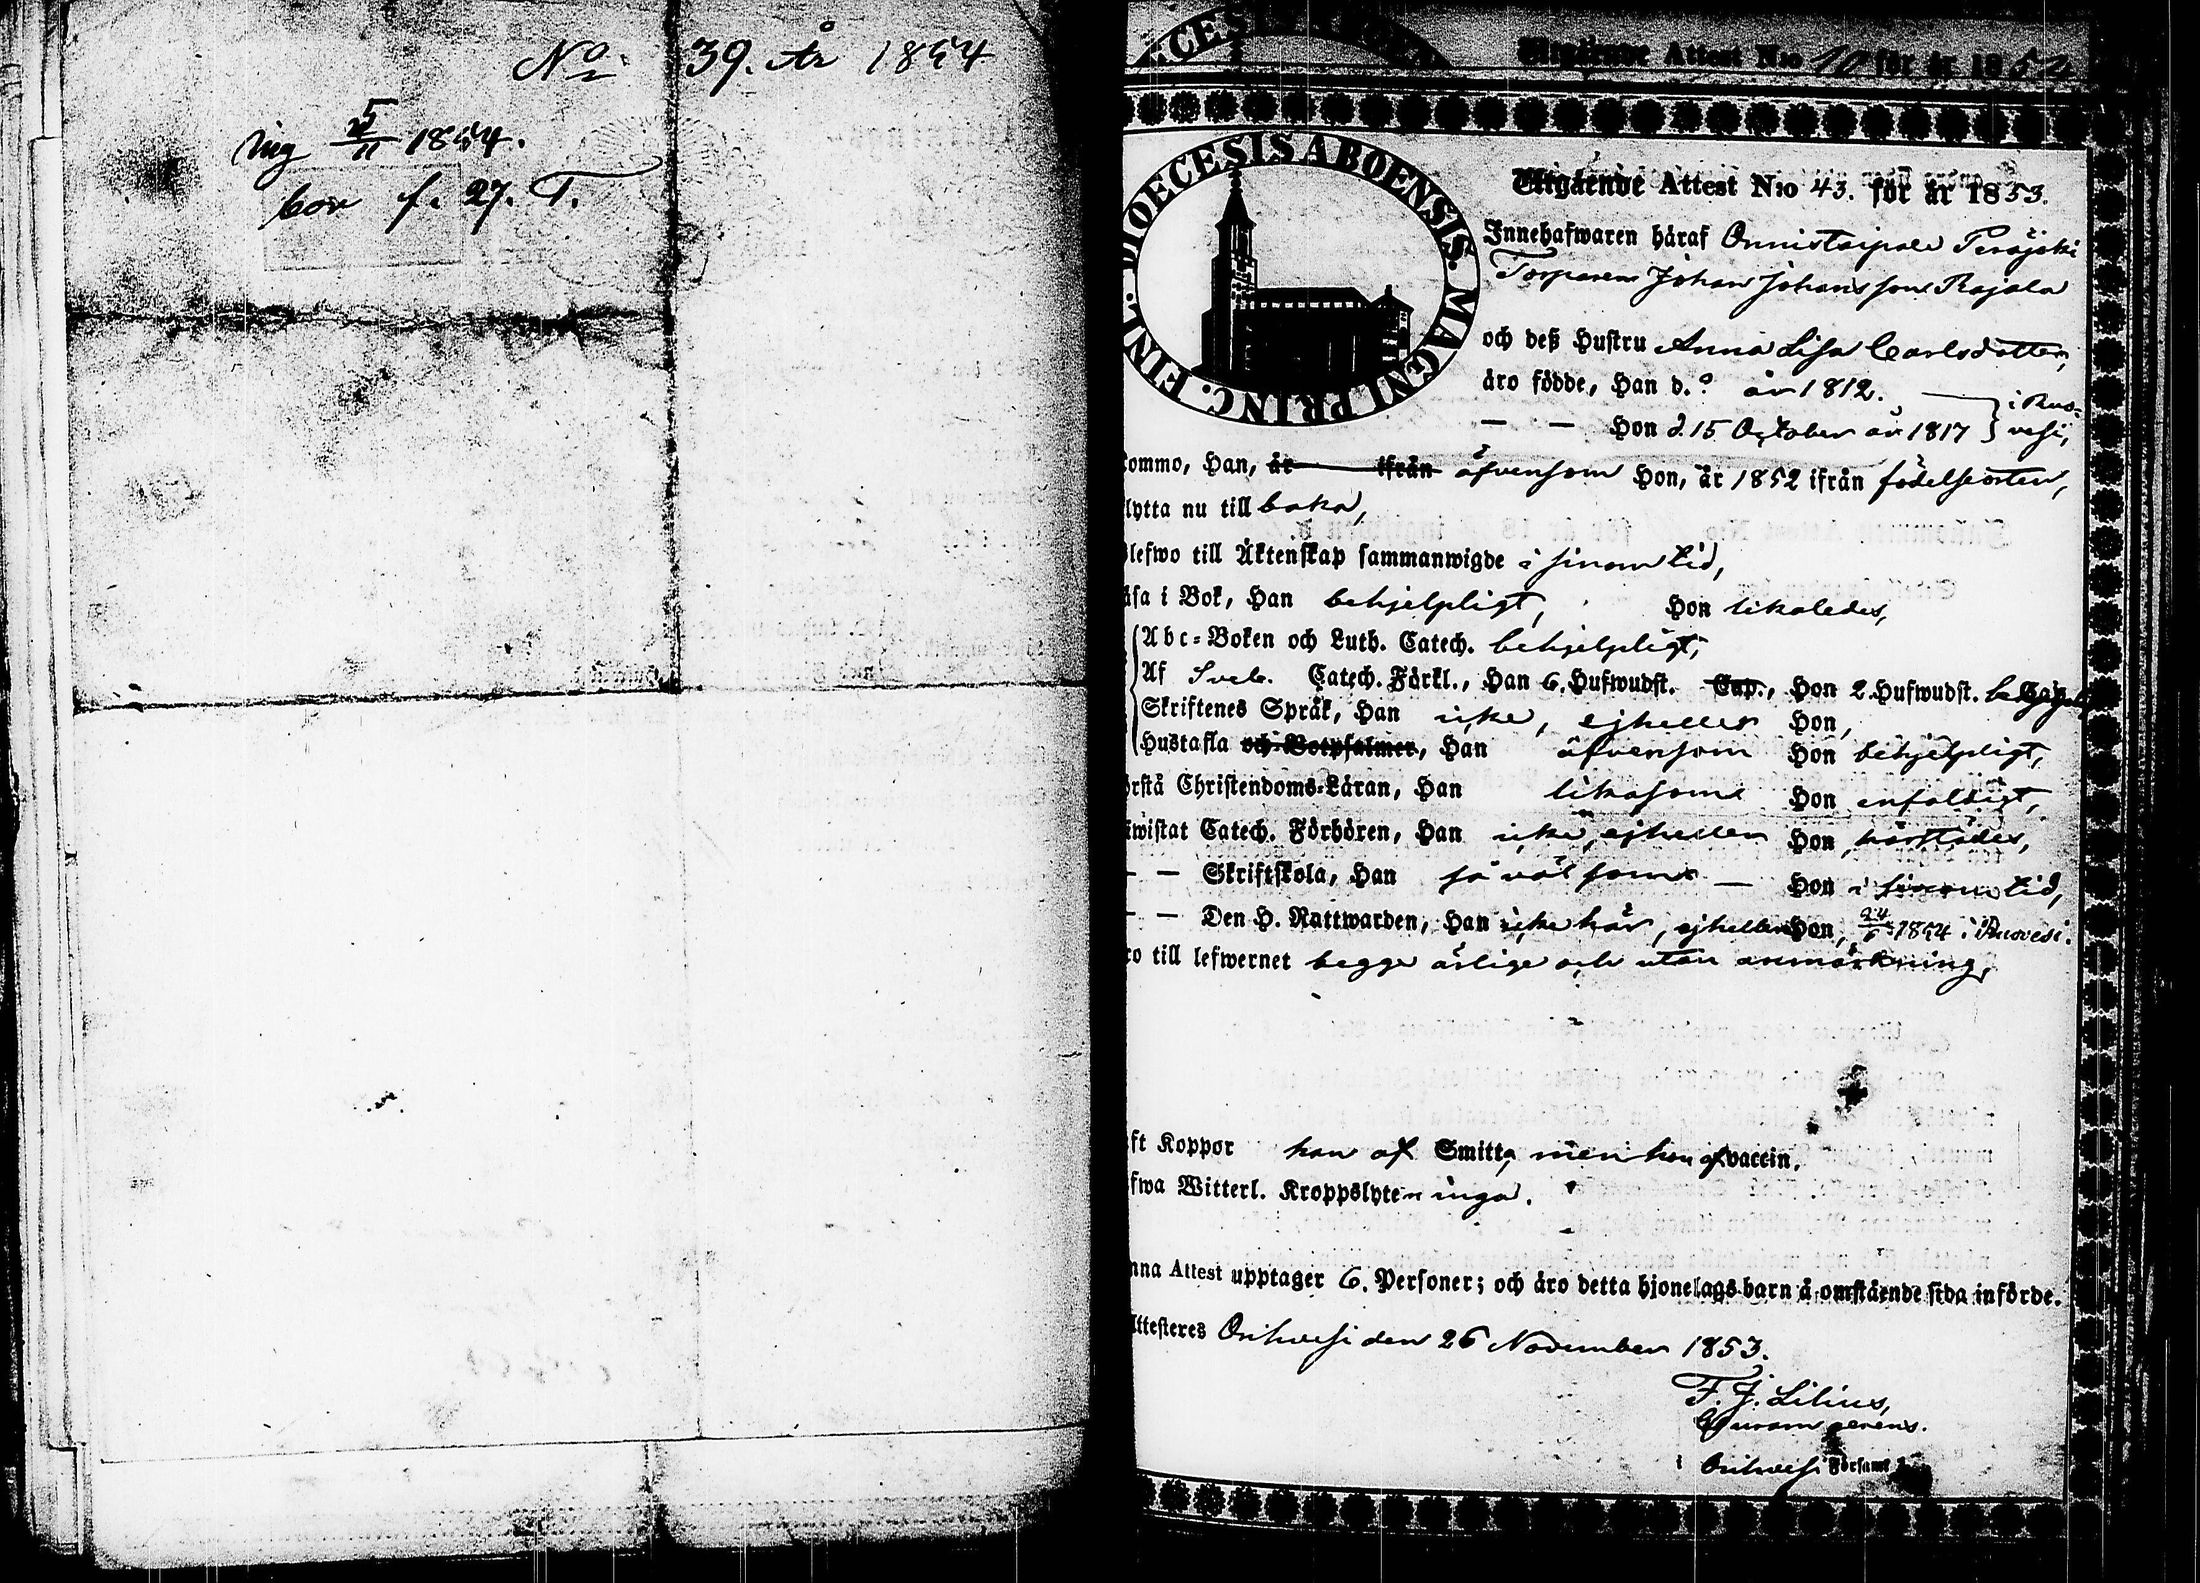 No 39. År 1854
ing 5/11 1854.
bov f. 27. T.
Utgående Attest N:o 10 för år 1852
DIOECESIS ABOENSIS. MAGNI PRINC. FINL.
Utgående Attest N:o 43. för år 1853.
Innehafwaren häraf Onnistaipale Peräjoki
Torparen Johan Johansson Rajala
och deß Hustru Anna Lisa Carlsdotter,
äro födde, Han d. ? år 1812. — i Ruo-
— — Hon d. 15 October år 1817 vesi,
ommo, Han, år ifrån äfvensom Hon, år 1852 ifrån födelseorten,
lytta nu till baka,
lefwo till Äktenskap sammanwigde i sinom tid,
äsa i Bok, Han behjelpligt, Hon likaledes,
Abc-Boken och Luth. Catech. behjelpligt,
Af Sveb. Catech. Förkl., Han 6. Hufwudst. Cap., Hon 2. Hufwudst.
Skriftenes Språk, Han icke, ejheller Hon,
Hustafla och Botpsalmer, Han äfvensom Hon behjelpligt,
örstå Christendoms-Läran, Han likasom Hon enfaldigt,
iwistat Catech. Förhören, Han icke, ejheller Hon, härstädes,
— — Skriftskola, Han så väl som — Hon i sinom tid,
— — Den H. Nattwarden, Han icke här, ejheller Hon, 24/6 1854 i Ruovesi.
ro till lefwernet begge ärlige och utan anmärkning,
ft Koppor han af Smitta, men hon af vaccin.
fwa Witterl. Kroppslyten inga.
nna Attest upptager 6. Personer; och äro detta hjonelags barn å omstående sida införde.
ttesteres Orihvesi den 26 November 1853.
F. J. Lilius,
Curam gerens.
i Orihvesi Församl.